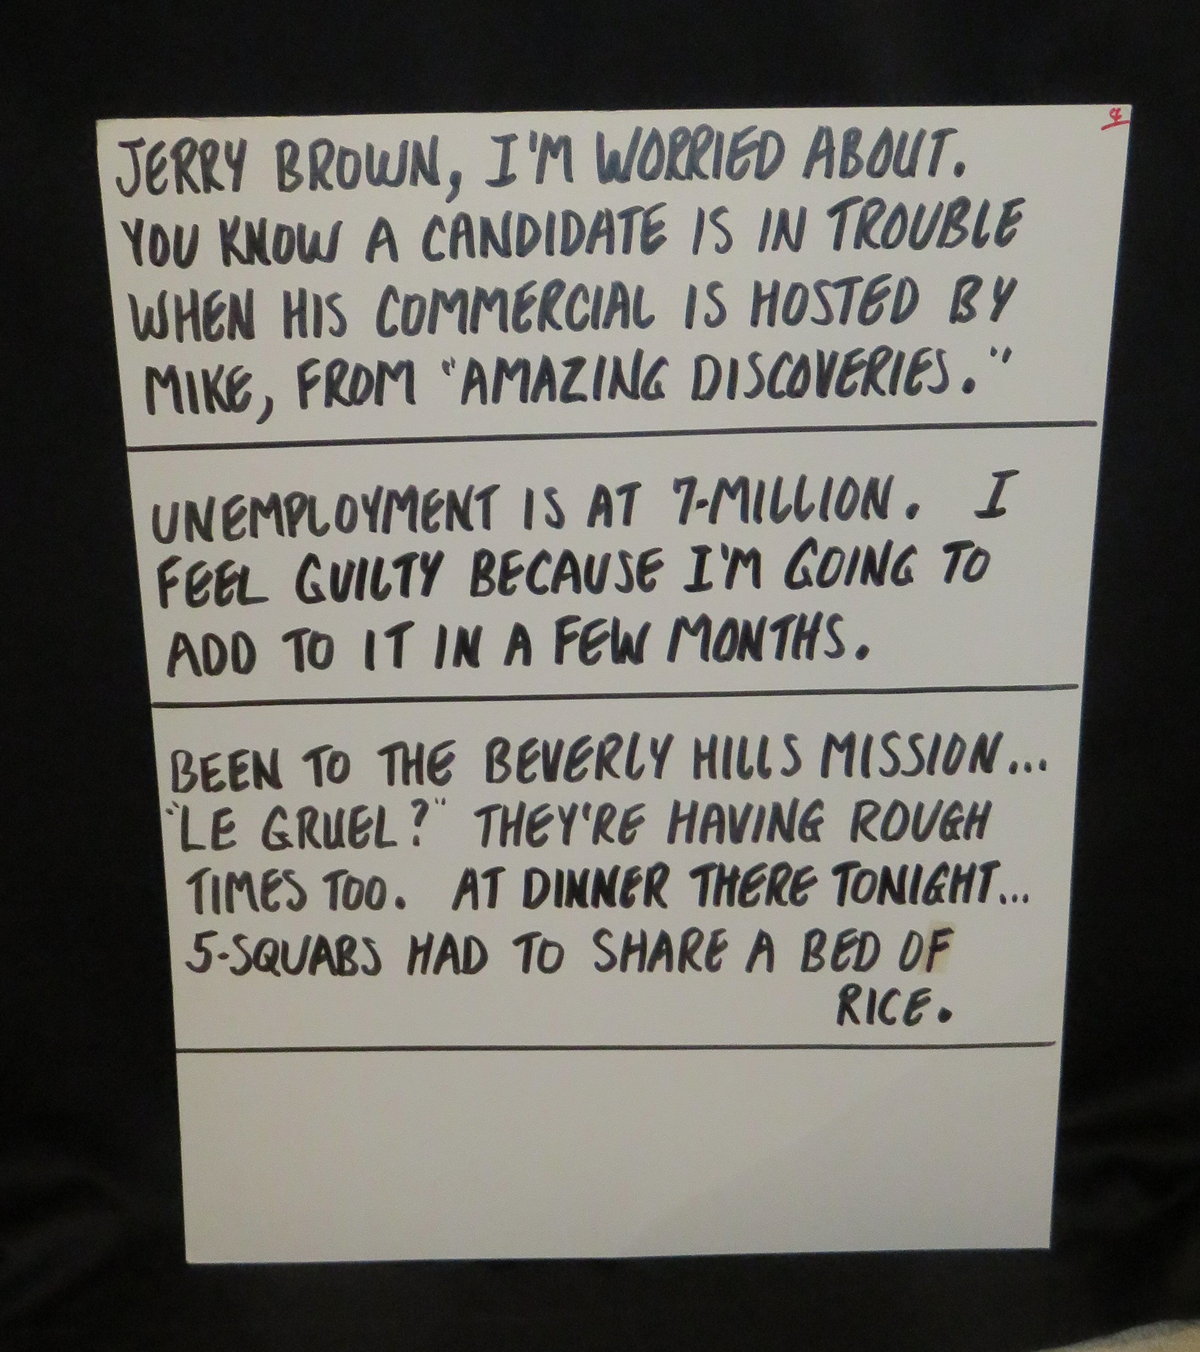 4
JERRY BROWN, I'M WORRIED ABOUT.
YOU KNOW A CANDIDATE IS IN TROUBLE
WHEN HIS COMMERCIAL IS HOSTED BY
MIKE, FROM "AMAZING DISCOVERIES."
UNEMPLOYMENT IS AT 7-MILLION. I
FEEL GUILTY BECAUSE I'M GOING TO
ADD TO IT IN A FEW MONTHS.
BEEN TO THE BEVERLY HILLS MISSION...
"LE GRUEL?" THEY'RE HAVING ROUGH
TIMES TOO. AT DINNER THERE TONIGHT...
5-SQUABS HAD TO SHARE A BED OF
RICE.